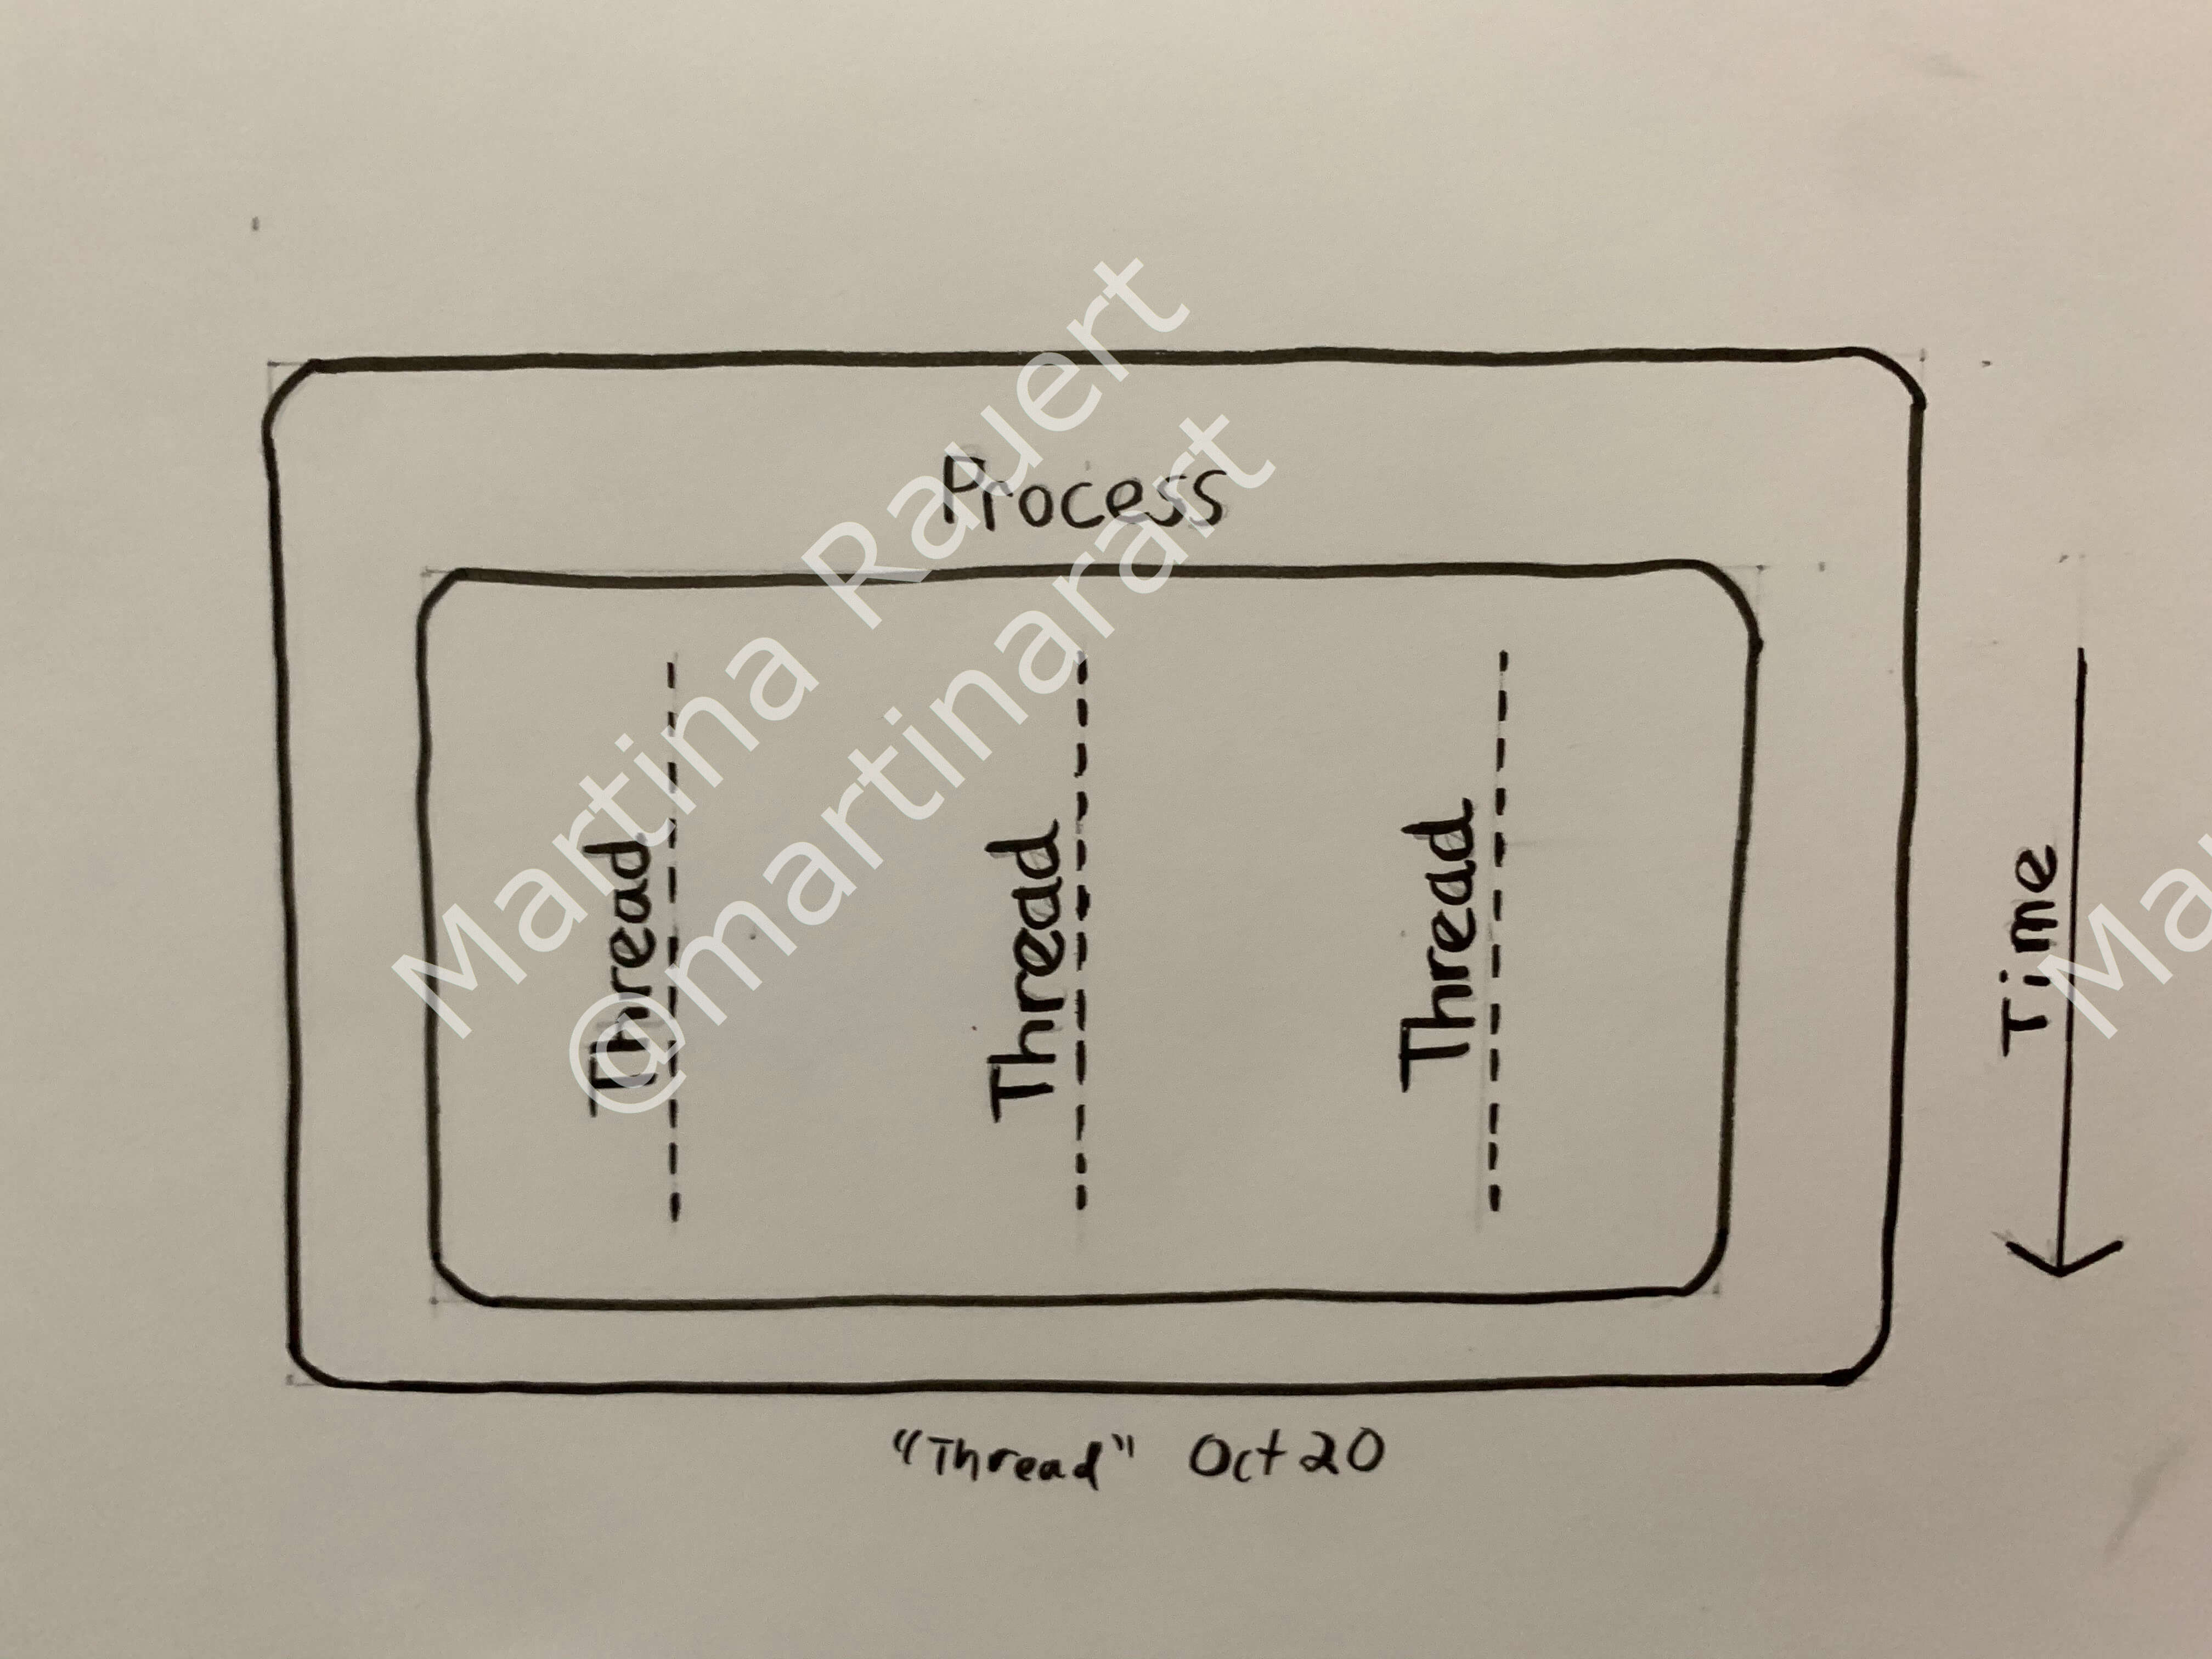 Process
Thread
Thread
Thread
Time
"Thread" Oct 20
Martina Rauert
@martinarart
Ma